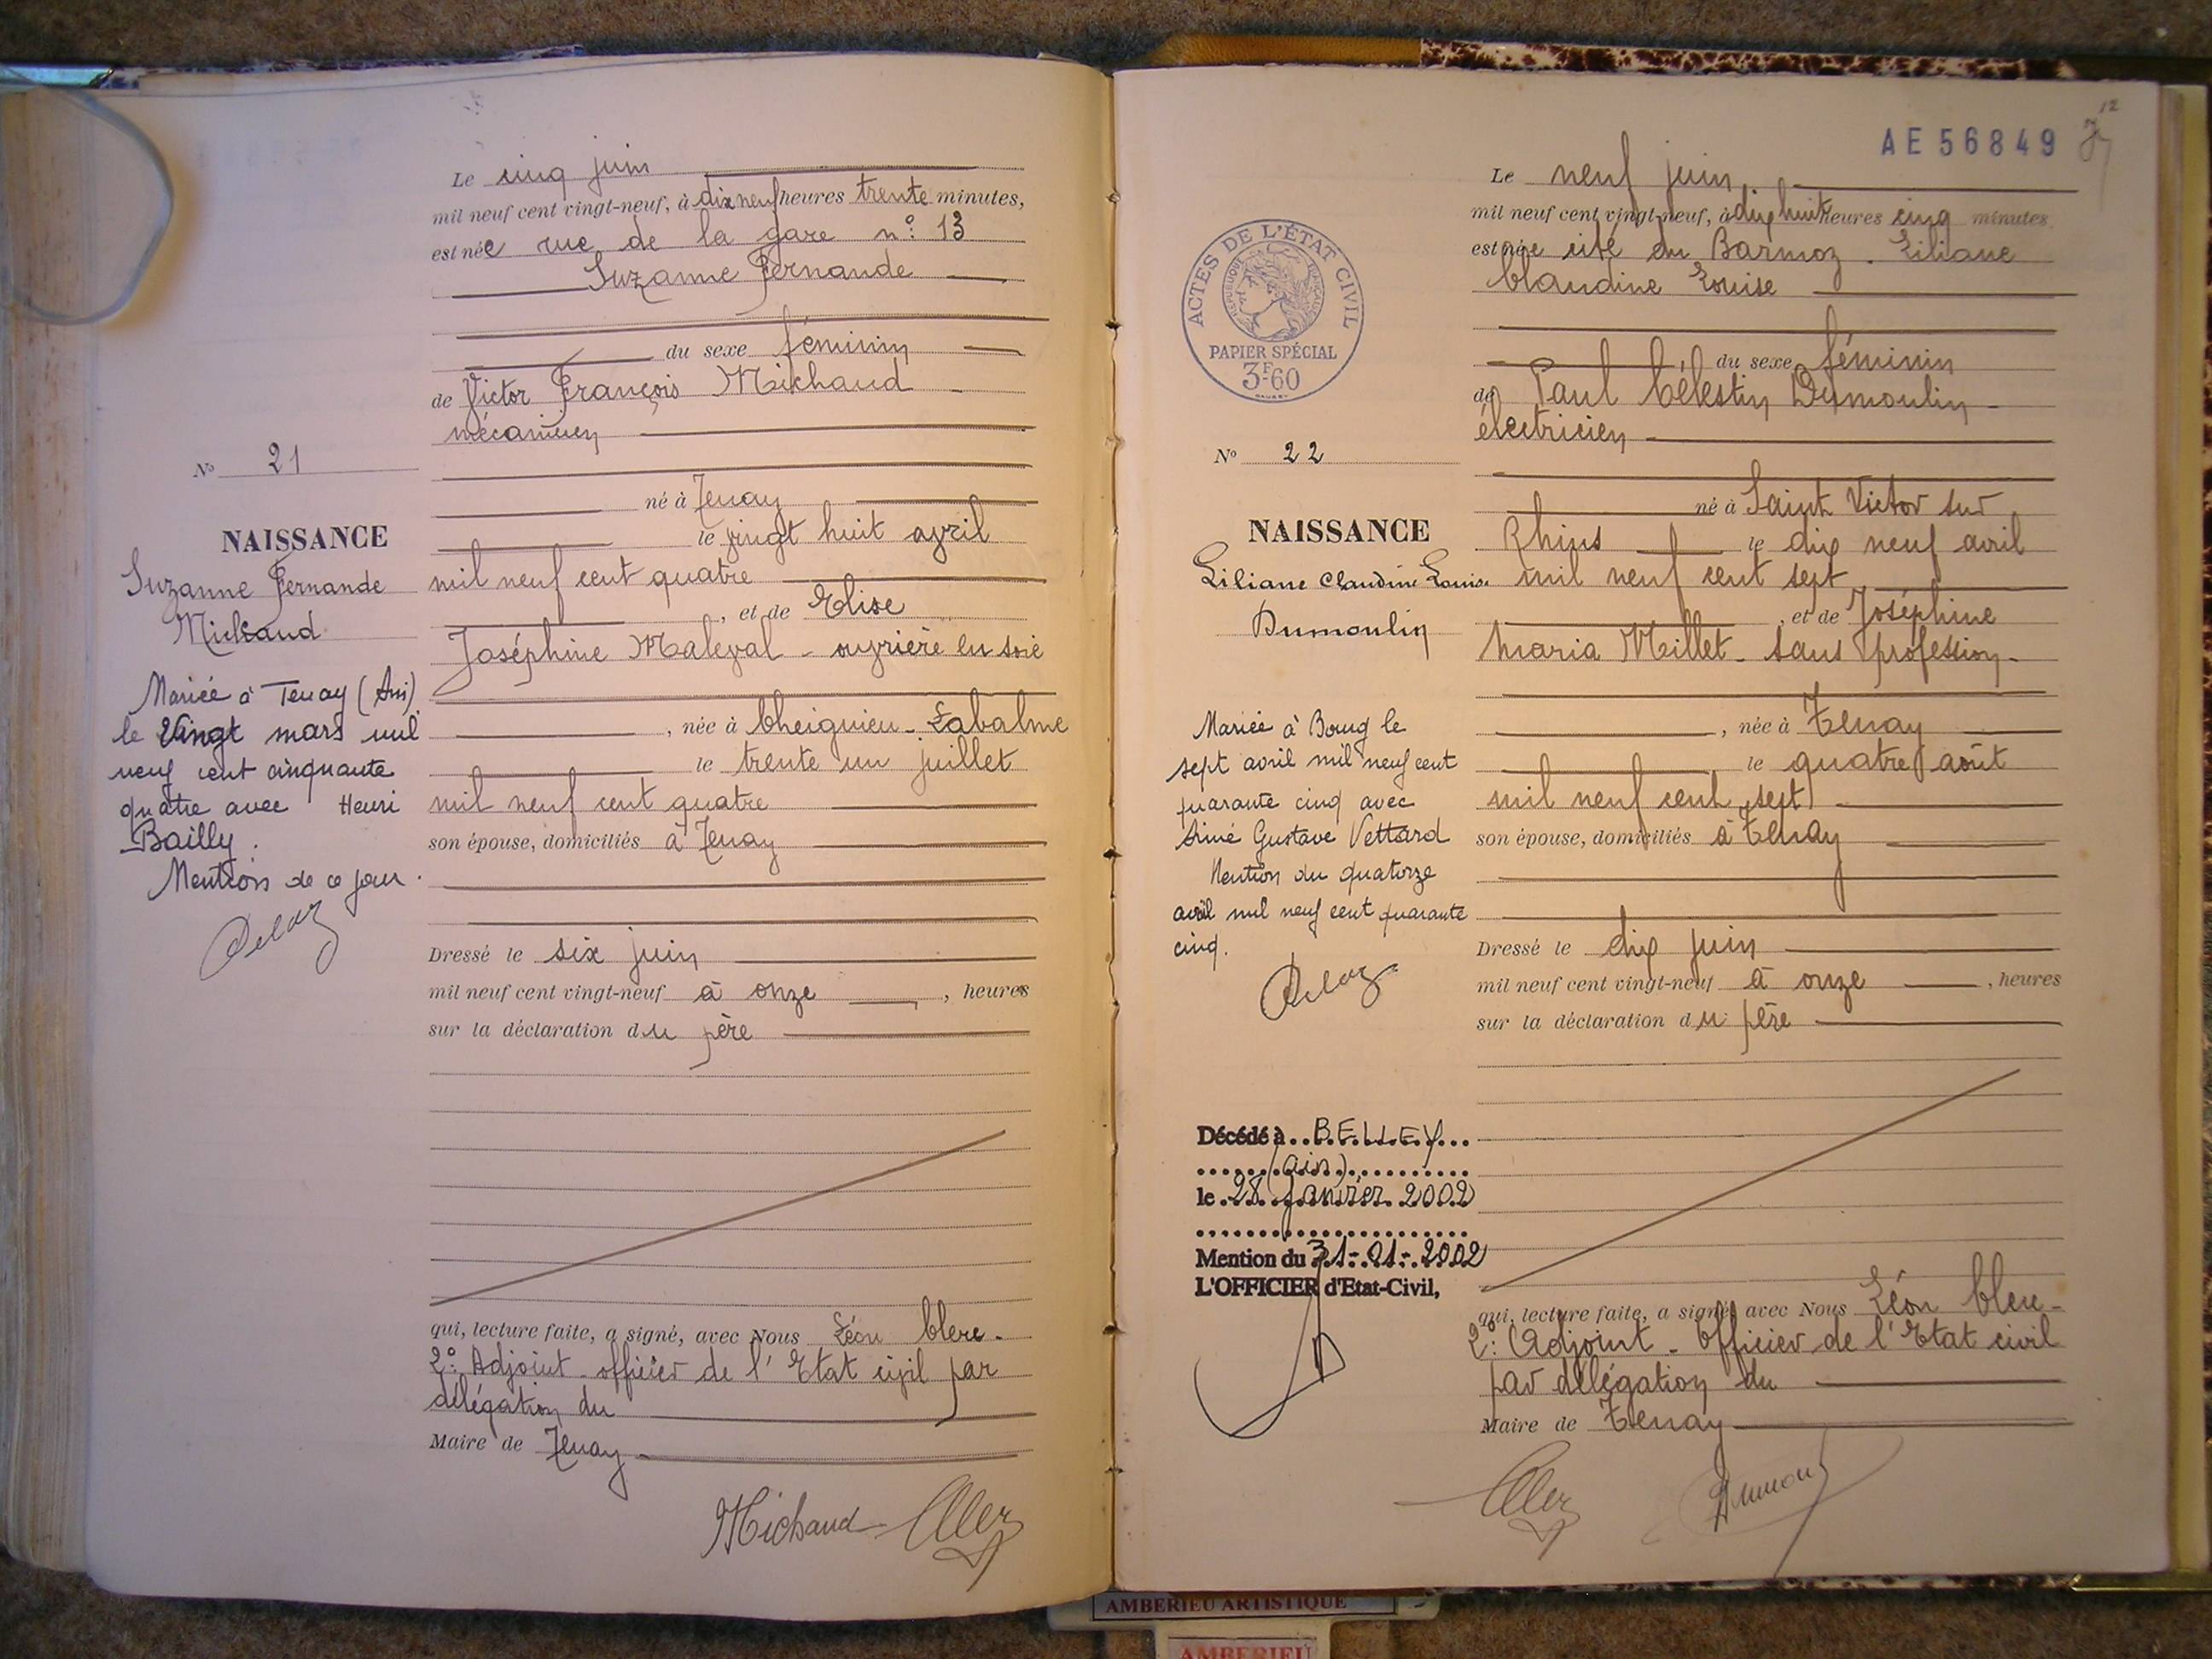 Le cinq juin
mil neuf cent vingt-neuf, à dix neuf heures trente minutes,
est née rue de la gare n° 13
Suzanne Fernande
du sexe féminin
de Victor François Michaud
mécanicien
né à Tenay
le vingt huit avril
mil neuf cent quatre
, et de Elise
Joséphine Maleval - ouvrière en soie
, née à Cheignieu-Labalme
le trente un juillet
mil neuf cent quatre
son épouse, domiciliés à Tenay
Dressé le six juin
mil neuf cent vingt-neuf à onze , heures
sur la déclaration du père
qui, lecture faite, a signé, avec Nous Léon Clerc-
2°: Adjoint - officier de l'Etat civil par
délégation du
Maire de Tenay
Michaud
N° 21
NAISSANCE
Suzanne Fernande
Michaud
Mariée à Tenay (Ain)
le Vingt mars mil
neuf cent cinquante
quatre avec Henri
Bailly.
Mention de ce jour.
AE 56849
12
Le neuf juin
mil neuf cent vingt-neuf, à dix huit heures cinq minutes
est née cité du Barmoz - Liliane
Claudine Louise
du sexe féminin
de Paul Célestin Dumoulin
électricien
né à Saint Victor sur
Rhins le dix neuf avril
mil neuf cent sept
, et de Joséphine
Maria Millet - sans profession -
, née à Tenay
le quatre août
mil neuf cent sept
son épouse, domiciliés à Tenay
Dressé le dix juin
mil neuf cent vingt-neuf à onze , heures
sur la déclaration du père
qui, lecture faite, a signé, avec Nous Léon Clerc-
2°: Adjoint - Officier de l'Etat civil
par délégation du
Maire de Tenay
ACTES DE L'ÉTAT CIVIL
RÉPUBLIQUE FRANÇAISE
PAPIER SPÉCIAL
3F60
N° 22
NAISSANCE
Liliane Claudine Louise
Dumoulin
Mariée à Bourg le
sept avril mil neuf cent
quarante cinq avec
Aimé Gustave Vettard
Mention du quatorze
avril mil neuf cent quarante
cinq.
Décédé à BELLEY
(ain)
le 28 janvier 2002
Mention du 31-01-2002
L'OFFICIER d'Etat-Civil,
AMBERIEU ARTISTIQUE
AMBERIEU